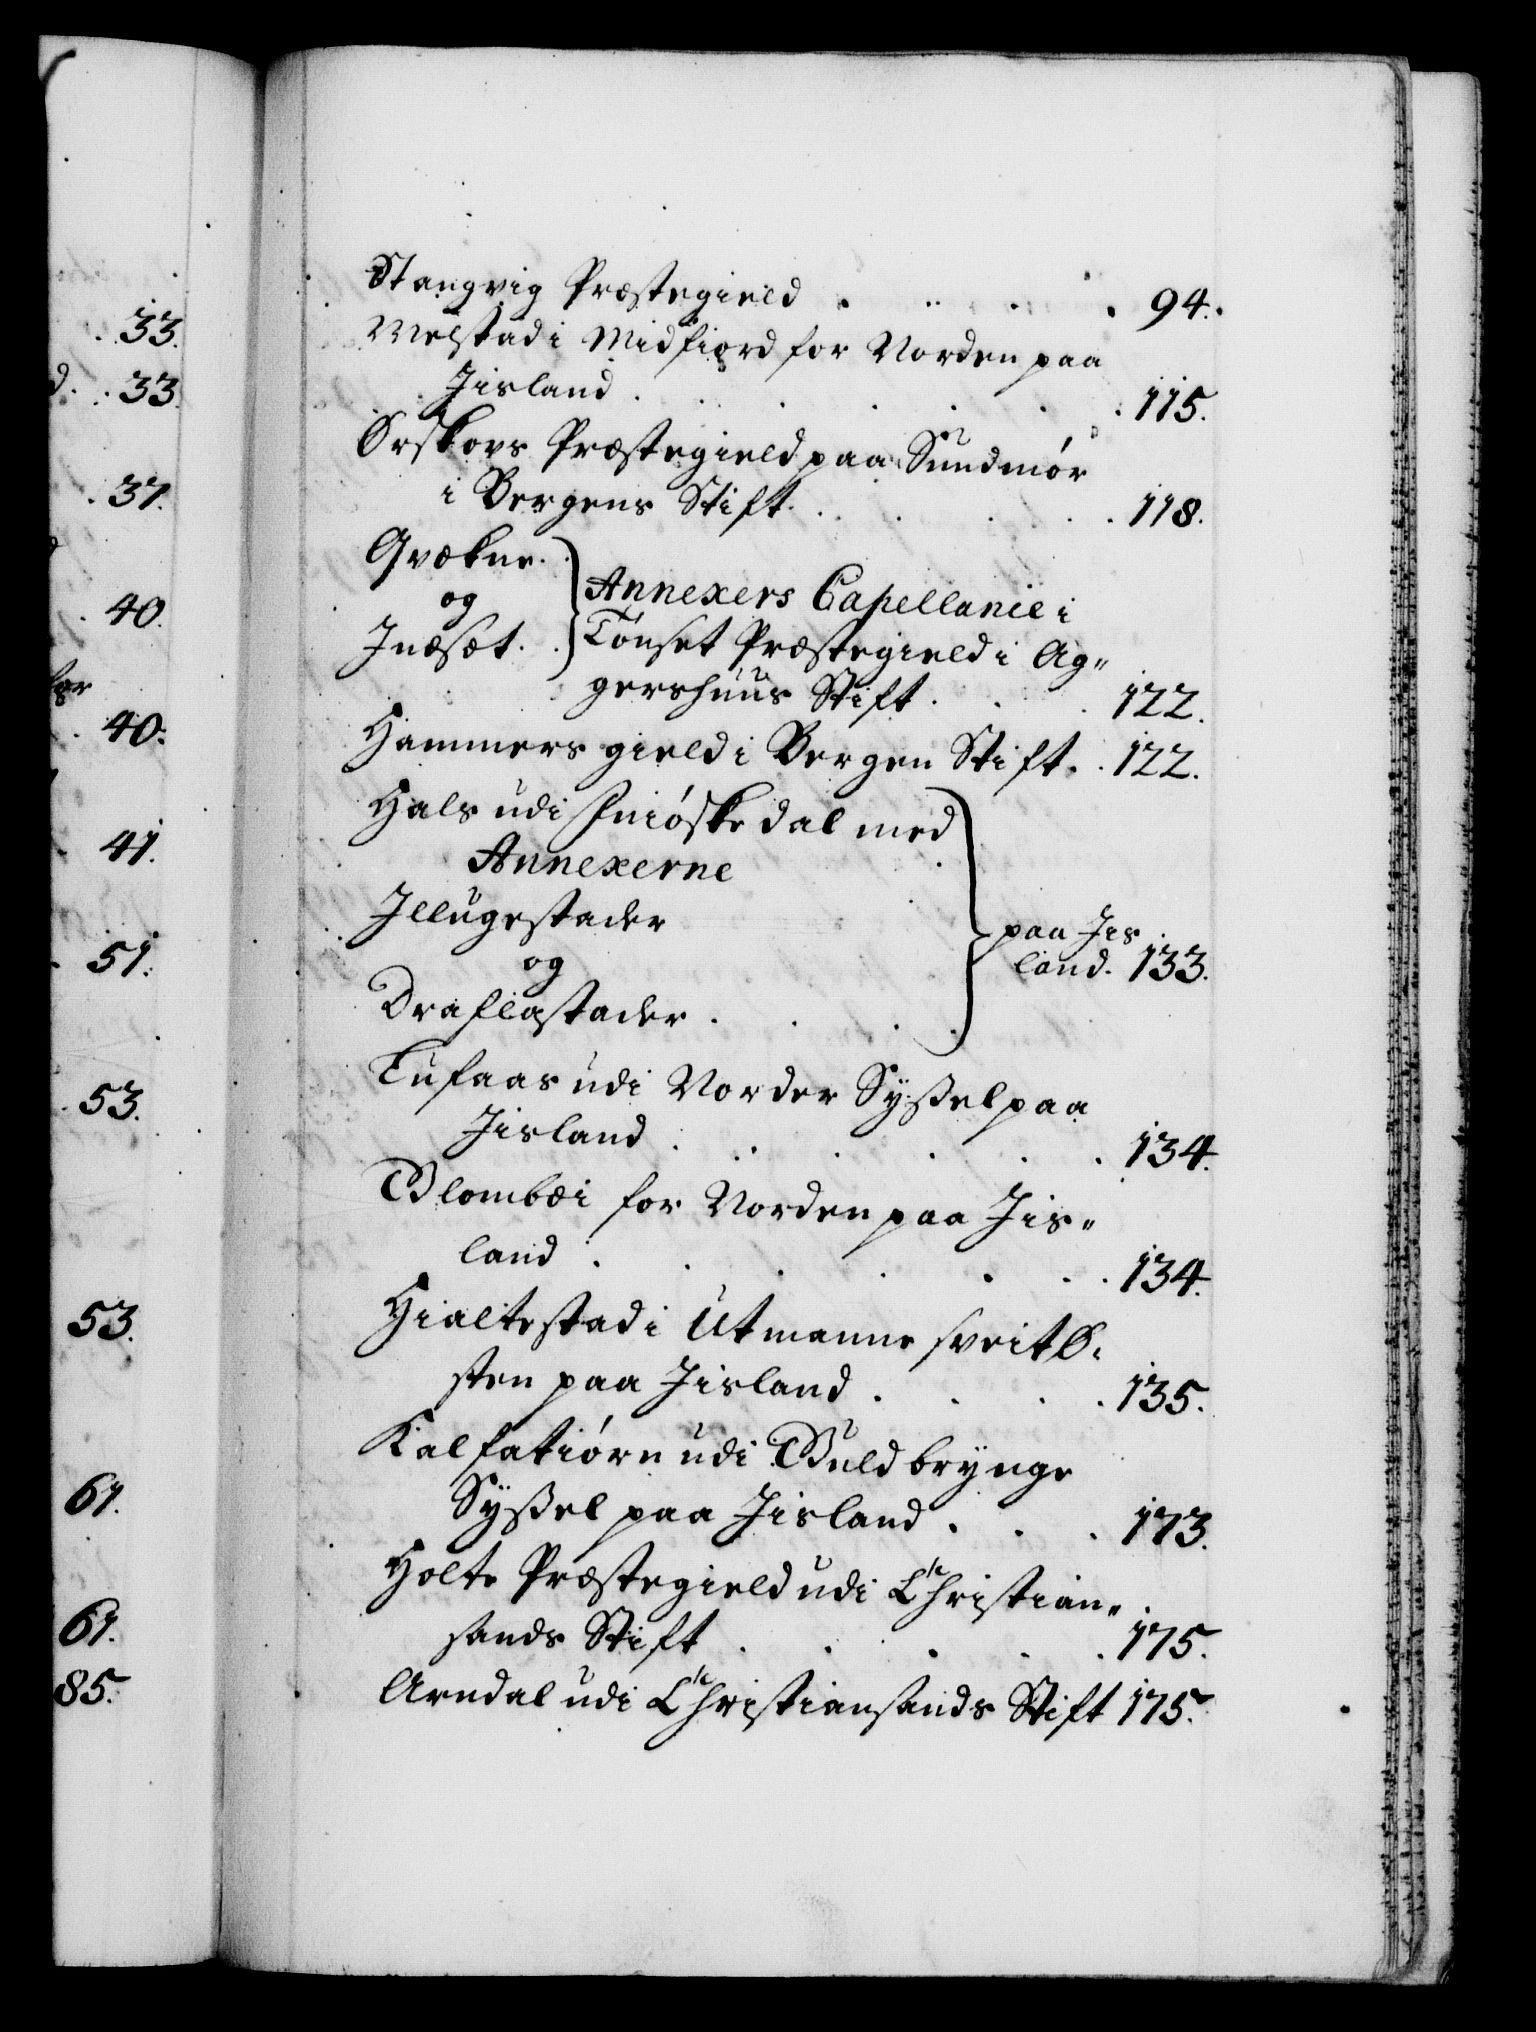 33.
d. . 33.
. 37.
. 40.
for
. 40.
41.
51.
53.
53.
61.
61.
85.
Stangvig Præstegield . . . . . 94.
Melstad i Midfiord for Norden paa
Jisland . . . . . . . 115.
Ørskovs Præstegield paa Sundmór
i Bergens Stift . . . . . 118.
Qvækne . .
og
Inæset . .
Annexers Capellanie i
Tónset Præstegield i Ag"
gershuus Stift . . . 122.
Hammers gield i Bergen Stift . . 122.
Hals udi Hnióskedal med
Annexerne
Illugestader
og
Draflastader . . . .
paa Jis
land. 133.
Tufaas udi Norder Sÿssel paa
Jisland . . . . . . 134.
Glombæi for Norden paa Jis"
land . . . . . . . 134.
Hialtestad i Utmanne sveit Ø.
sten paa Jisland . . . . 135.
Kalfatiórn udi Guldbrÿnge
Sÿssel paa Jisland . . . 173.
Holte Præstegield udi Christian"
sands Stift . . . . . . 175.
Arndal udi Christiansands Stift 175.